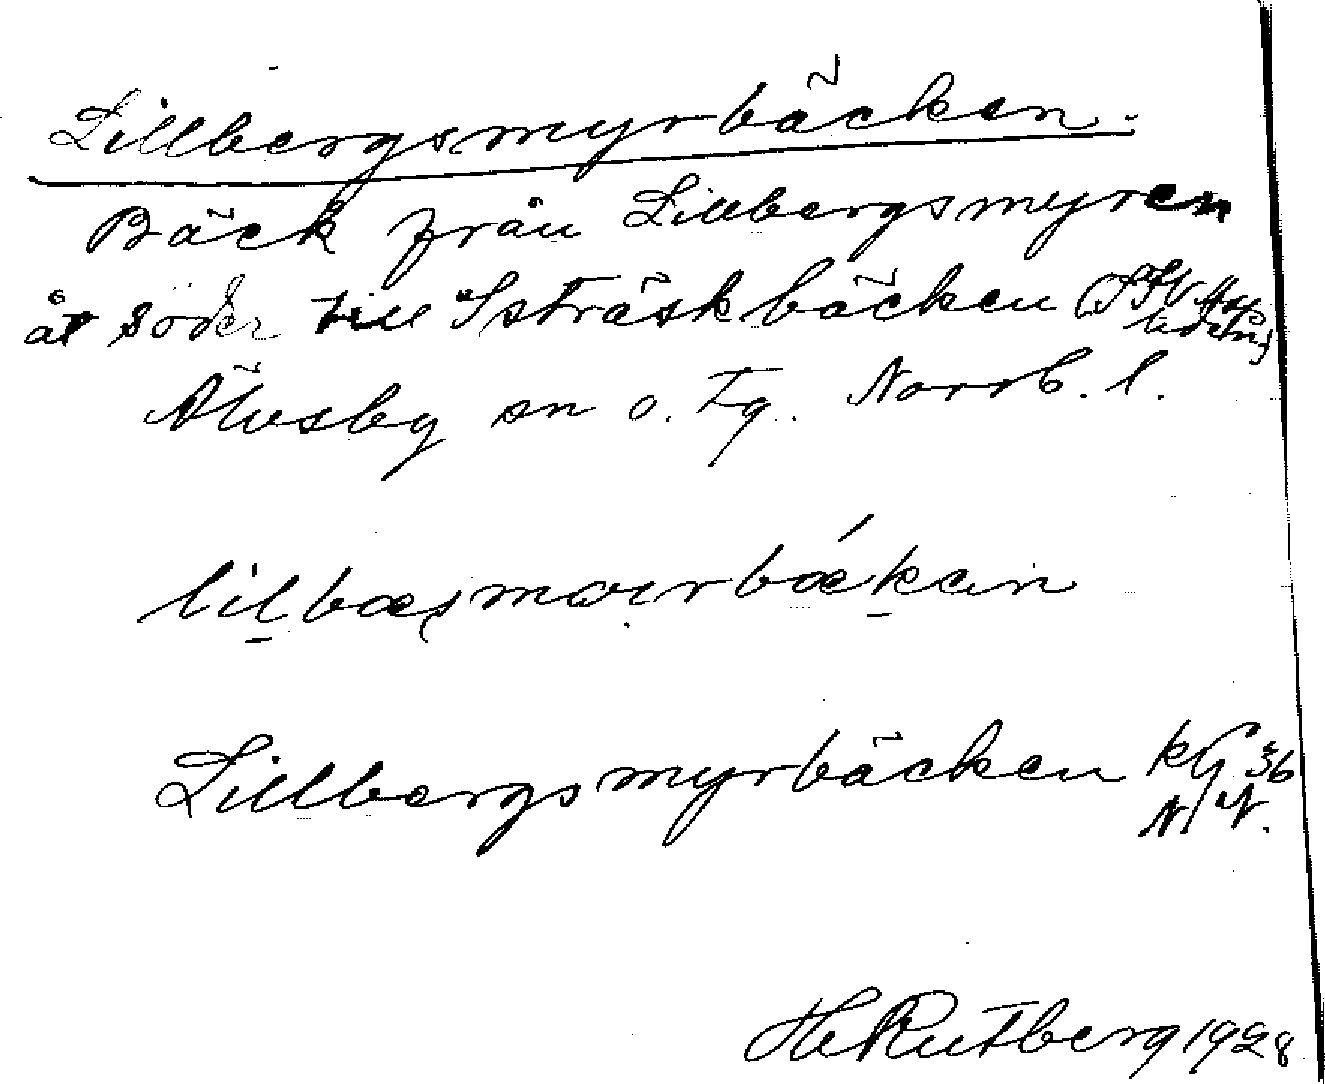 Lillbergsmyrbäcken.
Bäck från Lillbergsmyren
åt söder till Isträskbäcken
Älvsby sn o. tg. Norrb. l.
Lillbergsmyrbäcken kG 36
N/V.
Hl Rutberg 1928